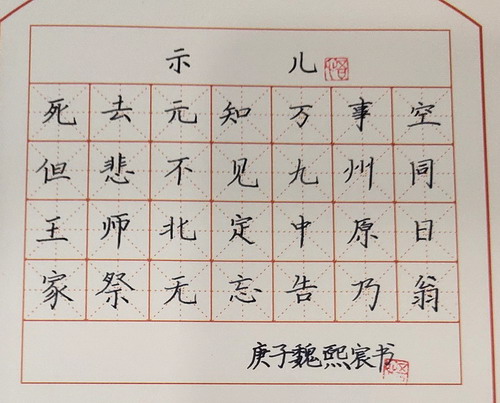 示儿
死去元知万事空
但悲不见九州同
王师北定中原日
家祭无忘告乃翁
庚子魏熙宸书